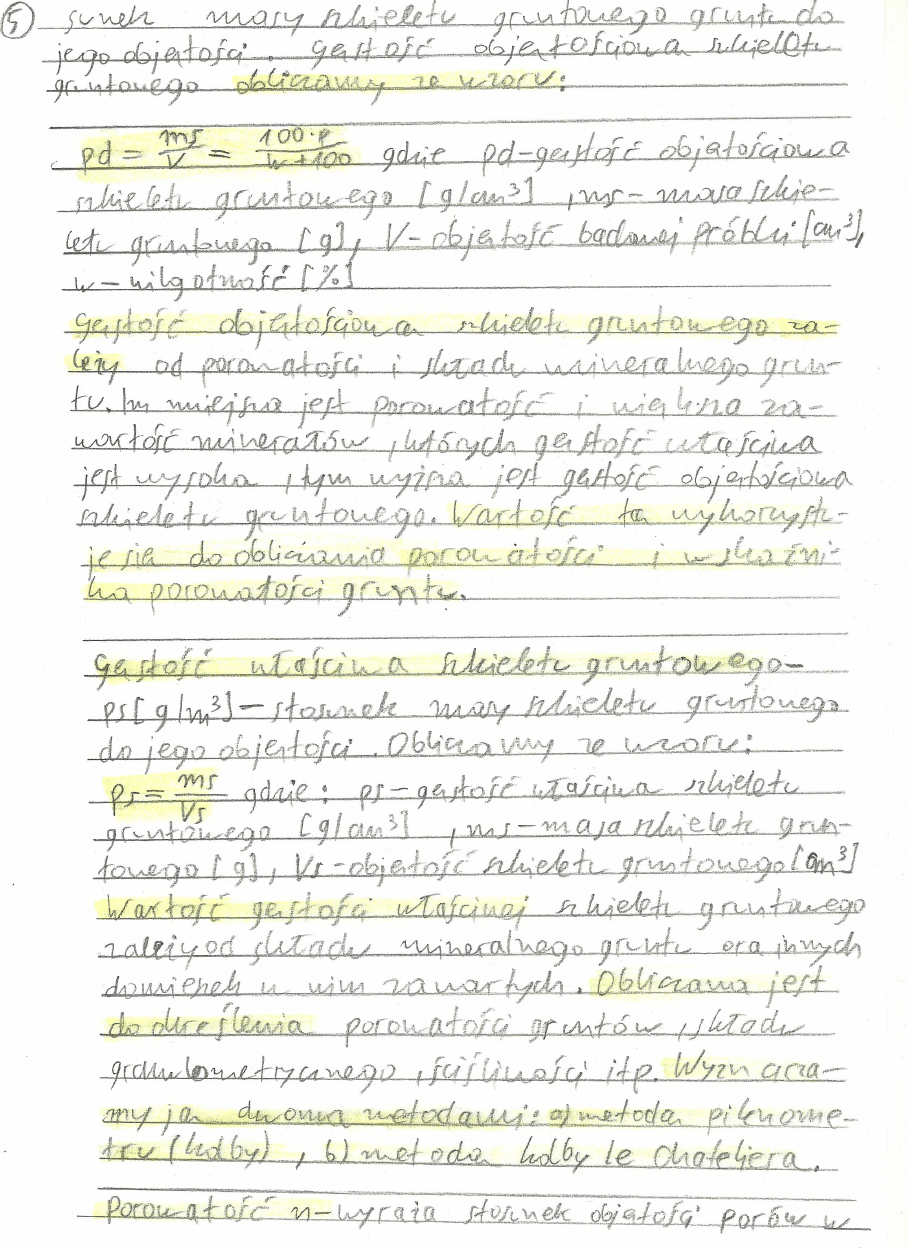 ⑤ sunek masy szkieletu gruntowego gruntu do
jego objętości. Gęstość objętościowa szkieletu
gruntowego obliczamy ze wzoru:
pd = ms/V = 100·p/w+100 gdzie pd-gęstość objętościowa
szkieletu gruntowego [g/cm³], ms-masa szkie-
letu gruntowego [g], V-objętość badanej próbki [cm³],
w-wilgotność [%]
Gęstość objętościowa szkieletu gruntowego za-
leży od porowatości i składu mineralnego grun-
tu. Im mniejsza jest porowatość i większa za-
wartość minerałów, których gęstość właściwa
jest wysoka, tym wyższa jest gęstość objętościowa
szkieletu gruntowego. Wartość ta wykorzystu-
je się do obliczania porowatości i wskaźni-
ka porowatości gruntu.
Gęstość właściwa szkieletu gruntowego-
ps[g/m³]-stosunek masy szkieletu gruntowego
do jego objętości. Obliczamy ze wzoru:
ps = ms/Vs gdzie: ps-gęstość właściwa szkieletu
gruntowego [g/cm³], ms-masa szkieletu grun-
towego [g], Vs-objętość szkieletu gruntowego [cm³]
Wartość gęstości właściwej szkieletu gruntowego
zależy od składu mineralnego gruntu ora innych
domieszek w nim zawartych. Obliczana jest
do określenia porowatości gruntów, składu
granulometrycznego, ściśliwości itp. Wyznacza-
my ją dwoma metodami: a) metoda piknome-
tru (kolby), b) metoda kolby le Chateliera.
Porowatość n-wyraża stosunek objętości porów w